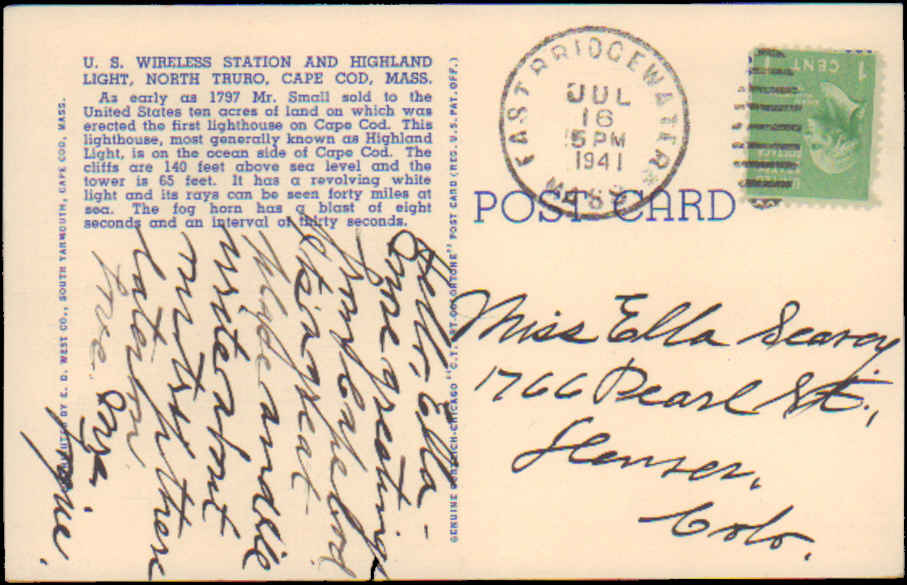 U. S. WIRELESS STATION AND HIGHLAND
LIGHT, NORTH TRURO, CAPE COD, MASS.
As early as 1797 Mr. Small sold to the
United States ten acres of land on which was
erected the first lighthouse on Cape Cod. This
lighthouse, most generally known as Highland
Light, is on the ocean side of Cape Cod. The
cliffs are 140 feet above sea level and the
tower is 65 feet. It has a revolving white
light and its rays can be seen forty miles at
sea. The fog horn has a blast of eight
seconds and an interval of thirty seconds.
Hello, Ella -
greetings
from Cape Cod
great
and will
write about
our trip there
later on.
Love.
BY E. D. WEST CO., SOUTH YARMOUTH, CAPE COD, MASS.
GENUINE CURTEICH-CHICAGO "C.T. ART-COLORTONE" POST CARD (REG. U.S. PAT. OFF.)
EAST BRIDGEWATER
MASS
JUL
16
5 PM
1941
1 CENT 1
POST CARD
Miss Ella Searcy
1766 Pearl St.,
Denver,
Colo.